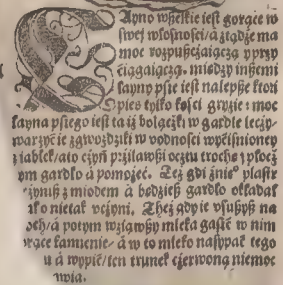 Łayno wſzelkie ieſt gorące w
ſwey własnoſci / á ztądże ma
moc rozpuſzczáiączą y przy
ciągaiączą. miedzy inſzemi
łayny pſie ieſt nalepſze ktori
pies tylko koſci gryzie: moc
łayna pſiego ieſt ta iż bolączki w gardle leczy-
warzyć ie z gwozdziki w vodnoſci wyciſnioney
z iablek / a to czyń przilawſzi ocztu trochę: płocż
ym gardło á pomożeć. Też gdi znie° plaſtr
czyniſz z miodem á bądzieß gardło okładal
nietak vczyni. Theż gdy ie vſuſzyß na
á potym wziąwſzy mleka gaſić w nim
rące kamienie / á w to mleko naſypać tego
u á wypić / ten trunek czerwoną niemoc